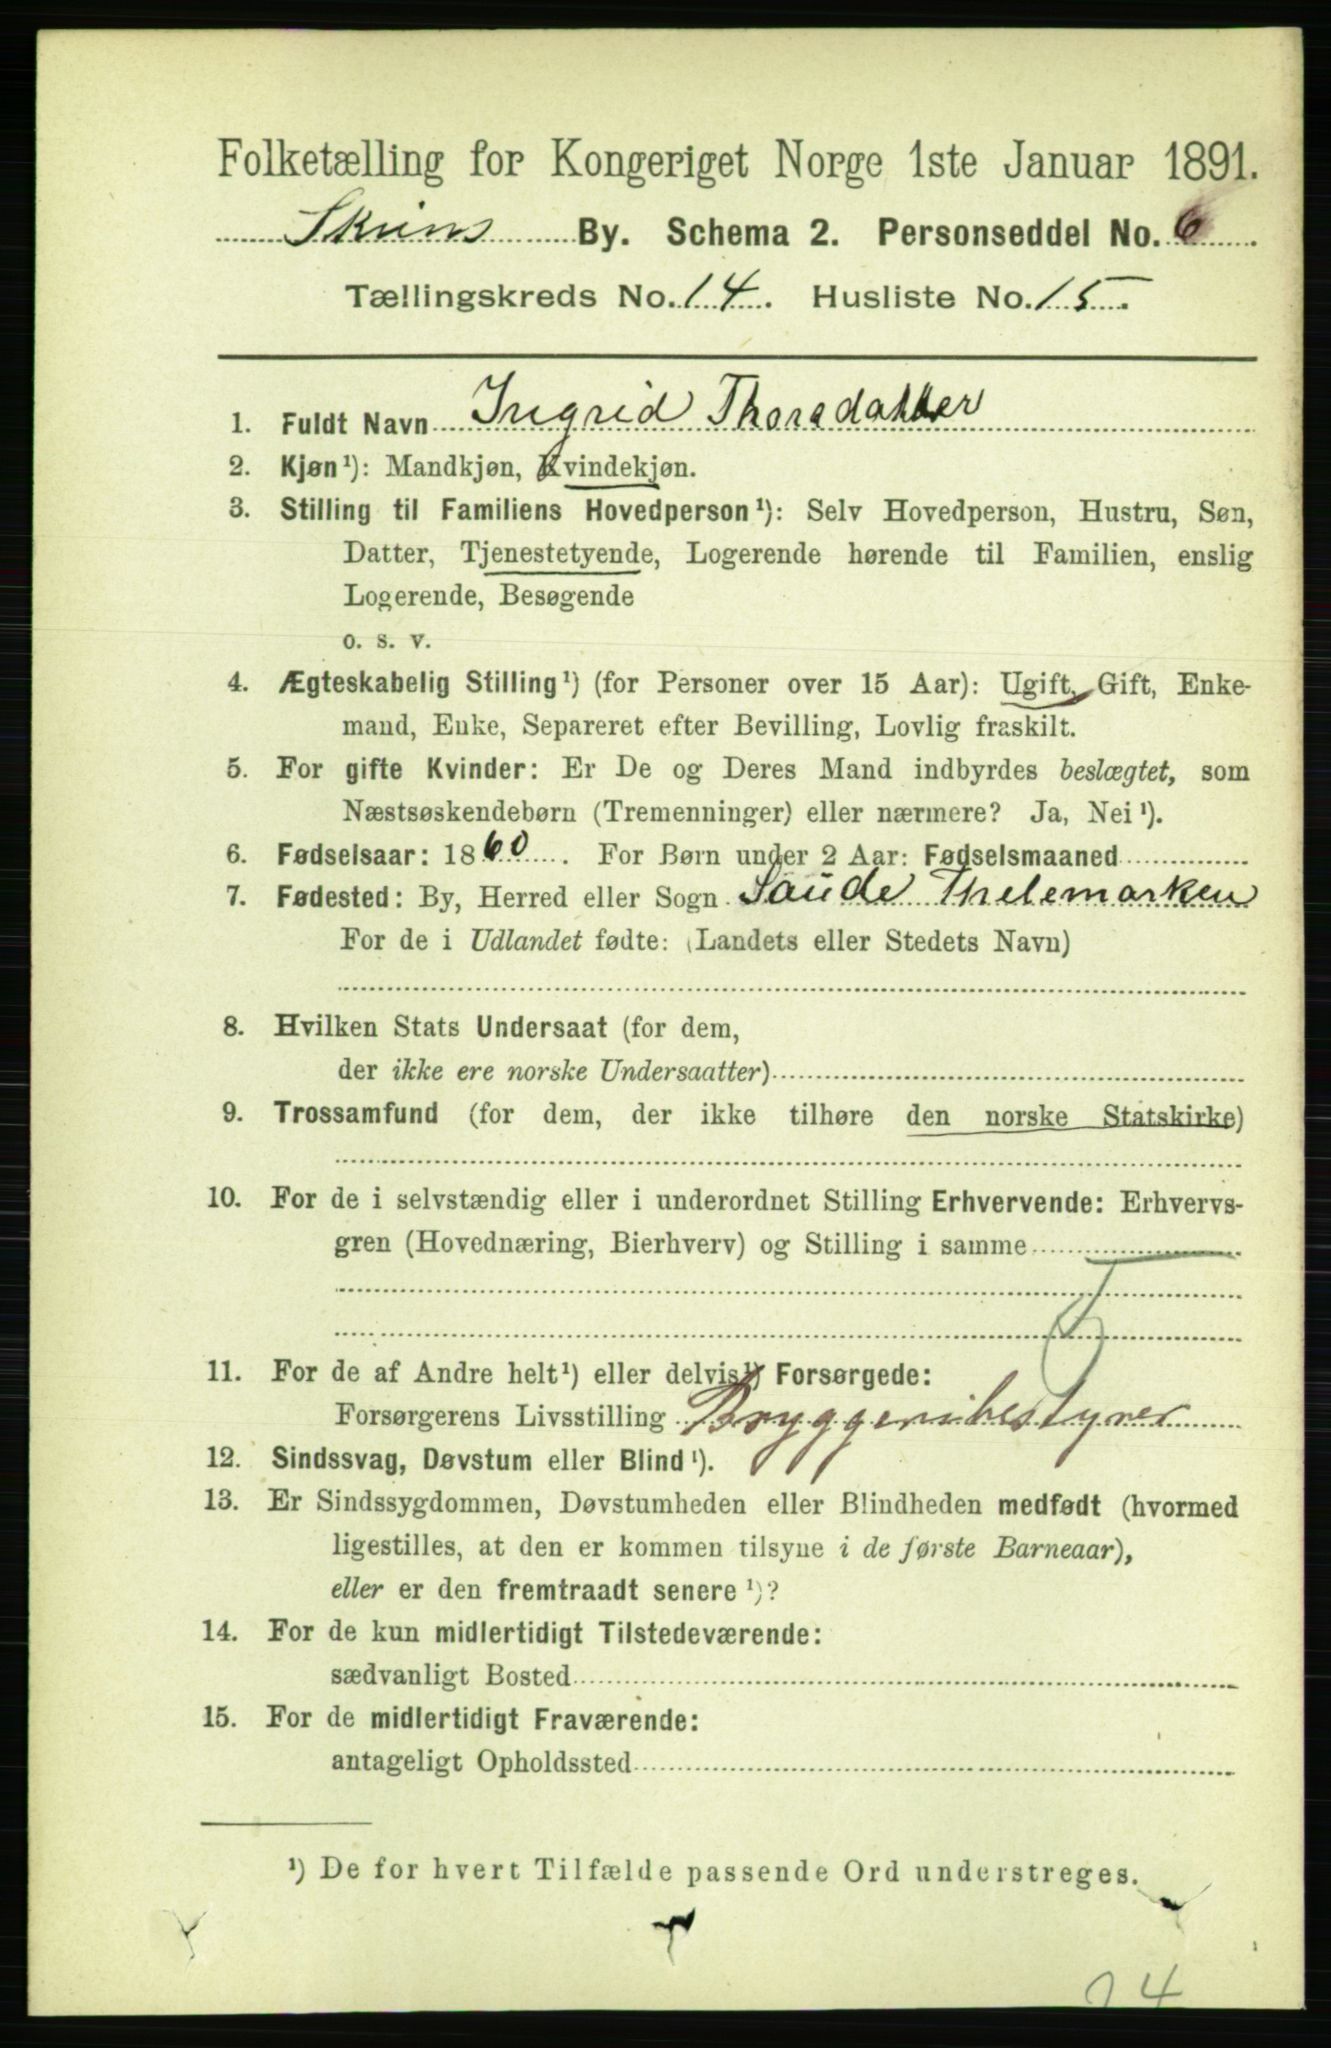 Folketælling for Kongeriget Norge 1ste Januar 1891.
Skiens By. Schema 2. Personseddel No. 6.
Tællingskreds No. 14. Husliste No. 15.
1. Fuldt Navn Ingrid Thorsdatter
2. Kjøn¹): Mandkjøn, Kvindekjøn.
3. Stilling til Familiens Hovedperson¹): Selv Hovedperson, Hustru, Søn,
Datter, Tjenestetyende, Logerende hørende til Familien, enslig
Logerende, Besøgende
o. s. v.
4. Ægteskabelig Stilling¹) (for Personer over 15 Aar): Ugift, Gift, Enke-
mand, Enke, Separeret efter Bevilling, Lovlig fraskilt.
5. For gifte Kvinder: Er De og Deres Mand indbyrdes beslægtet, som
Næstsøskendebørn (Tremenninger) eller nærmere? Ja, Nei¹).
6. Fødselsaar: 1860. For Børn under 2 Aar: Fødselsmaaned
7. Fødested: By, Herred eller Sogn Saude Thelemarken
For de i Udlandet fødte: (Landets eller Stedets Navn)
8. Hvilken Stats Undersaat (for dem,
der ikke ere norske Undersaatter)
9. Trossamfund (for dem, der ikke tilhøre den norske Statskirke)
10. For de i selvstændig eller i underordnet Stilling Erhvervende: Erhvervs-
gren (Hovednæring, Bierhverv) og Stilling i samme
11. For de af Andre helt¹) eller delvis¹) Forsørgede:
Forsørgerens Livsstilling Bryggeribestyrer
12. Sindssvag, Døvstum eller Blind¹).
13. Er Sindssygdommen, Døvstumheden eller Blindheden medfødt (hvormed
ligestilles, at den er kommen tilsyne i de første Barneaar),
eller er den fremtraadt senere¹)?
14. For de kun midlertidigt Tilstedeværende:
sædvanligt Bosted
15. For de midlertidigt Fraværende:
antageligt Opholdssted
¹) De for hvert Tilfælde passende Ord understreges.
24